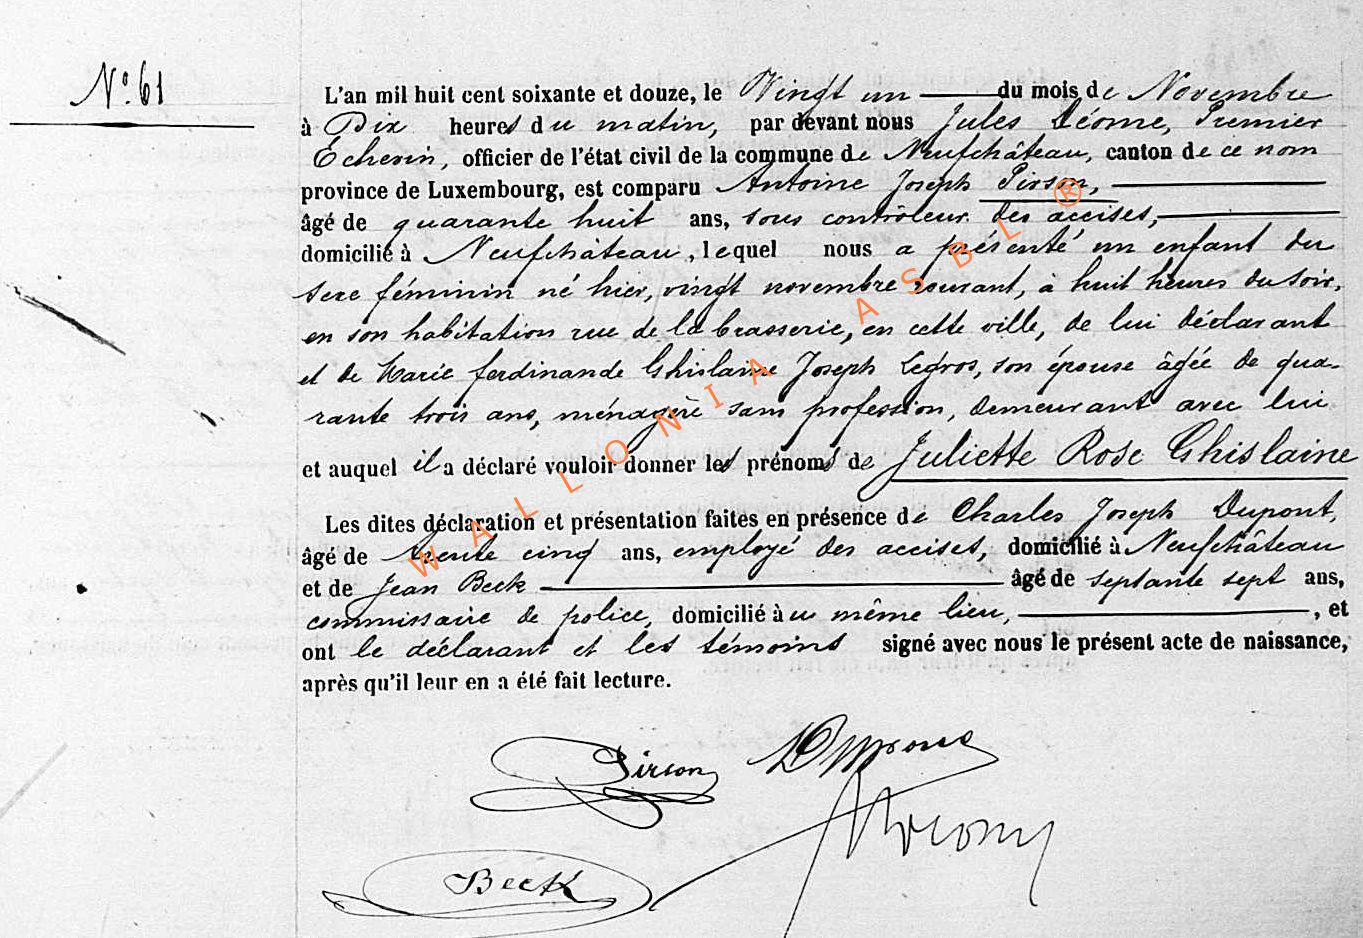 N° 61
L'an mil huit cent soixante et douze, le Vingt un du mois de Novembre
à Dix heures du matin, par devant nous Jules Déome, Premier
Echevin, officier de l'état civil de la commune de Neufchâteau, canton de ce nom
province de Luxembourg, est comparu Antoine Joseph Pirson,
âgé de quarante huit ans, sous contrôleur des accises,
domicilié à Neufchâteau, lequel nous a présenté un enfant du
sexe féminin né hier, vingt novembre courant, à huit heures du soir,
en son habitation rue de la brasserie, en cette ville, de lui déclarant
et de Marie ferdinande Ghislaine Joseph Legros, son épouse âgée de qua-
rante trois ans, ménagère sans profession, demeurant avec lui
et auquel il a déclaré vouloir donner les prénoms de Juliette Rose Ghislaine
Les dites déclaration et présentation faites en présence de Charles Joseph Dupont,
âgé de trente cinq ans, employé des accises, domicilié à Neufchâteau
et de Jean Beck âgé de septante sept ans,
commissaire de police, domicilié au même lieu, , et
ont le déclarant et les témoins signé avec nous le présent acte de naissance,
après qu'il leur en a été fait lecture.
Pirson Dupont
Beck
WALLONIA ASBL ®